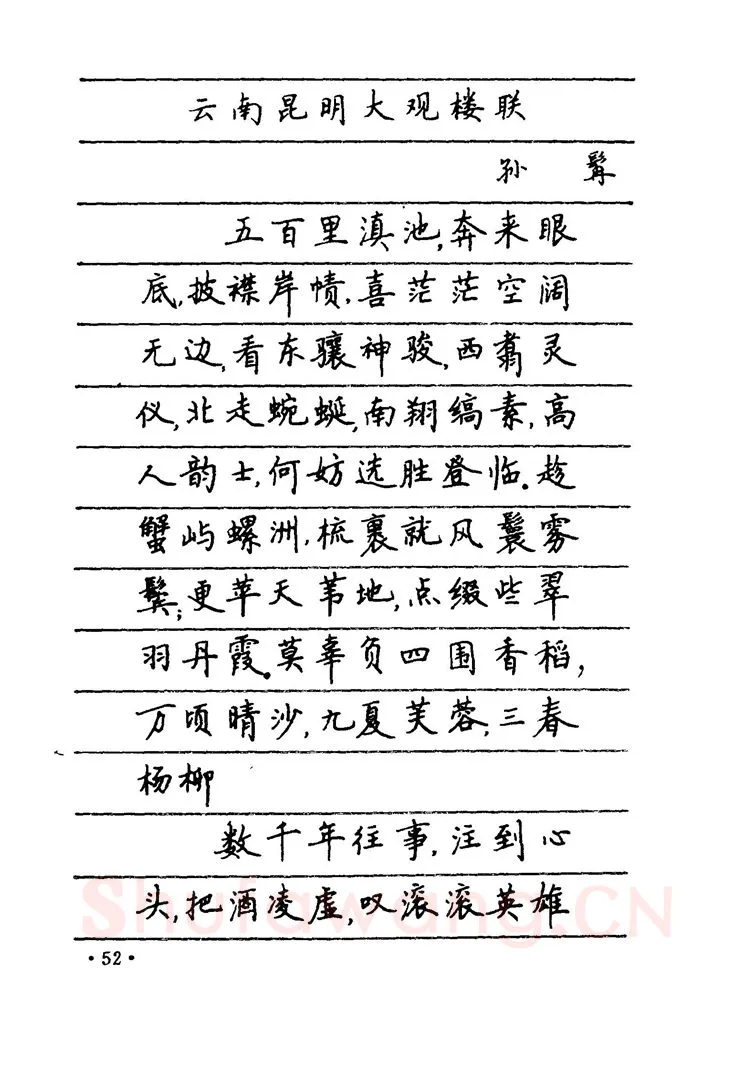 云南昆明大观楼联
孙 髯
五百里滇池,奔来眼
底,披襟岸帻,喜茫茫空阔
无边,看东骧神骏,西翥灵
仪,北走蜿蜒,南翔缟素,高
人韵士,何妨选胜登临。趁
蟹屿螺洲,梳裹就风鬟雾
鬓;更苹天苇地,点缀些翠
羽丹霞。莫辜负四围香稻,
万顷晴沙,九夏芙蓉,三春
杨柳
数千年往事,注到心
头,把酒凌虚,叹滚滚英雄
·52·
Shufawang.CN